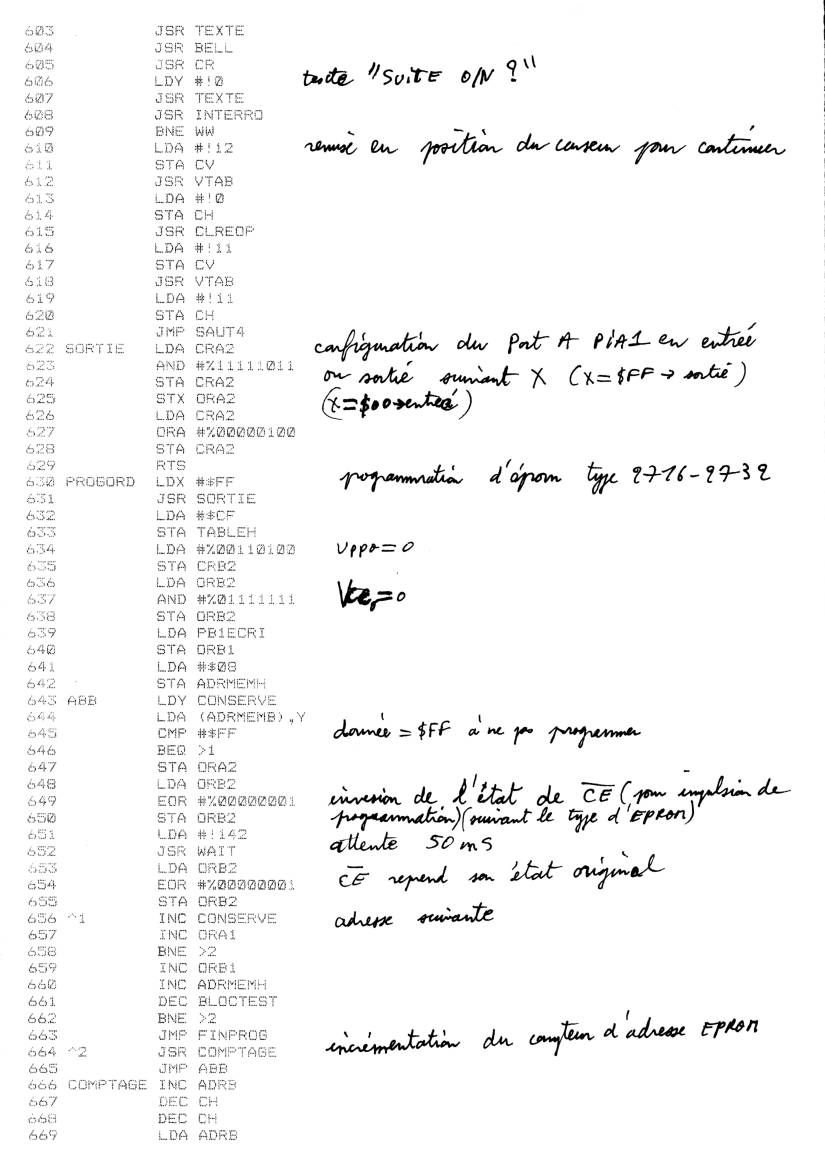 603 JSR TEXTE
604 JSR BELL
605 JSR CR
606 LDY #!0 texte "SUITE O/N ?"
607 JSR TEXTE
608 JSR INTERRO
609 BNE WW
610 LDA #!12 remise en position du curseur pour continuer
611 STA CV
612 JSR VTAB
613 LDA #!0
614 STA CH
615 JSR CLREOP
616 LDA #!11
617 STA CV
618 JSR VTAB
619 LDA #!11
620 STA CH
621 JMP SAUT4
622 SORTIE LDA CRA2 configuration du Port A PIA1 en entrée
623 AND #%11111011 ou sortie suivant X (X=$FF → sortie)
624 STA CRA2
625 STX ORA2 (X=$00→entrée)
626 LDA CRA2
627 ORA #%00000100
628 STA CRA2
629 RTS
630 PROGORD LDX #$FF programmation d'éprom type 2716-2732
631 JSR SORTIE
632 LDA #$CF
633 STA TABLEH
634 LDA #%00110100 Vpp0=0
635 STA CRB2
636 LDA ORB2
637 AND #%01111111 =0
638 STA ORB2
639 LDA PB1ECRI
640 STA ORB1
641 LDA #$08
642 STA ADRMEMH
643 ABB LDY CONSERVE
644 LDA (ADRMEMB),Y
645 CMP #$FF donnée = $FF à ne pas programmer
646 BEQ >1
647 STA ORA2
648 LDA ORB2
649 EOR #%00000001 inversion de l'état de CE (pour impulsion de
650 STA ORB2 programmation)(suivant le type d'EPROM)
651 LDA #!142
652 JSR WAIT attente 50 ms
653 LDA ORB2
654 EOR #%00000001 CE reprend son état original
655 STA ORB2
656 ^1 INC CONSERVE adresse suivante
657 INC ORA1
658 BNE >2
659 INC ORB1
660 INC ADRMEMH
661 DEC BLOCTEST
662 BNE >2
663 JMP FINPROG
664 ^2 JSR COMPTAGE incrémentation du compteur d'adresse EPROM
665 JMP ABB
666 COMPTAGE INC ADRB
667 DEC CH
668 DEC CH
669 LDA ADRB